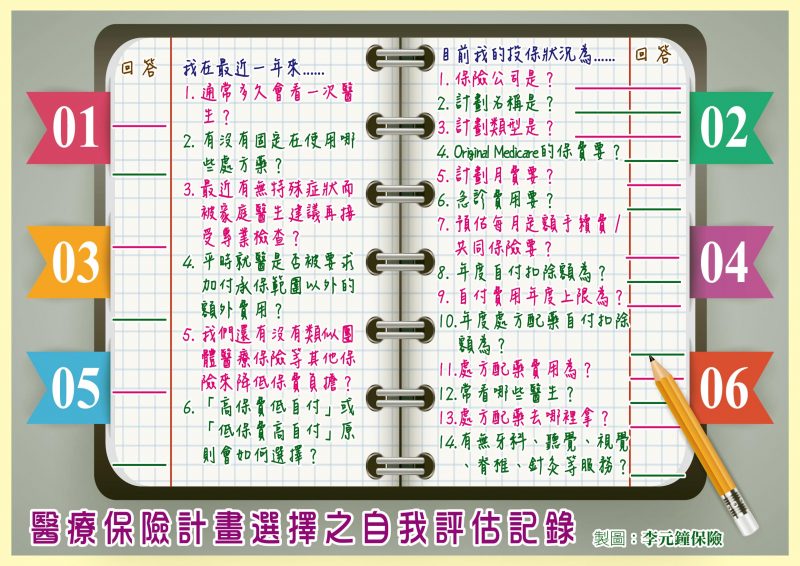 回答
我在最近一年來......
1. 通常多久會看一次醫
生？
2. 有沒有固定在使用哪
些處方藥？
3. 最近有無特殊症狀而
被家庭醫生建議再接
受專業檢查？
4. 平時就醫是否被要求
加付承保範圍以外的
額外費用？
5. 我們還有沒有類似團
體醫療保險等其他保
險來降低保費負擔？
6. 「高保費低自付」或
「低保費高自付」原
則會如何選擇？
目前我的投保狀況為......
回答
1. 保險公司是？
2. 計劃名稱是？
3. 計劃類型是？
4. Original Medicare的保費要？
5. 計劃月費要？
6. 急診費用要？
7. 預估每月定額手續費/
共同保險要？
8. 年度自付扣除額為？
9. 自付費用年度上限為？
10.年度處方配藥自付扣除
額為？
11.處方配藥費用為？
12.常看哪些醫生？
13.處方配藥去哪裡拿？
14.有無牙科、聽覺、視覺
、脊椎、針灸等服務？
01
03
05
02
04
06
醫療保險計畫選擇之自我評估記錄
製圖：李元鐘保險